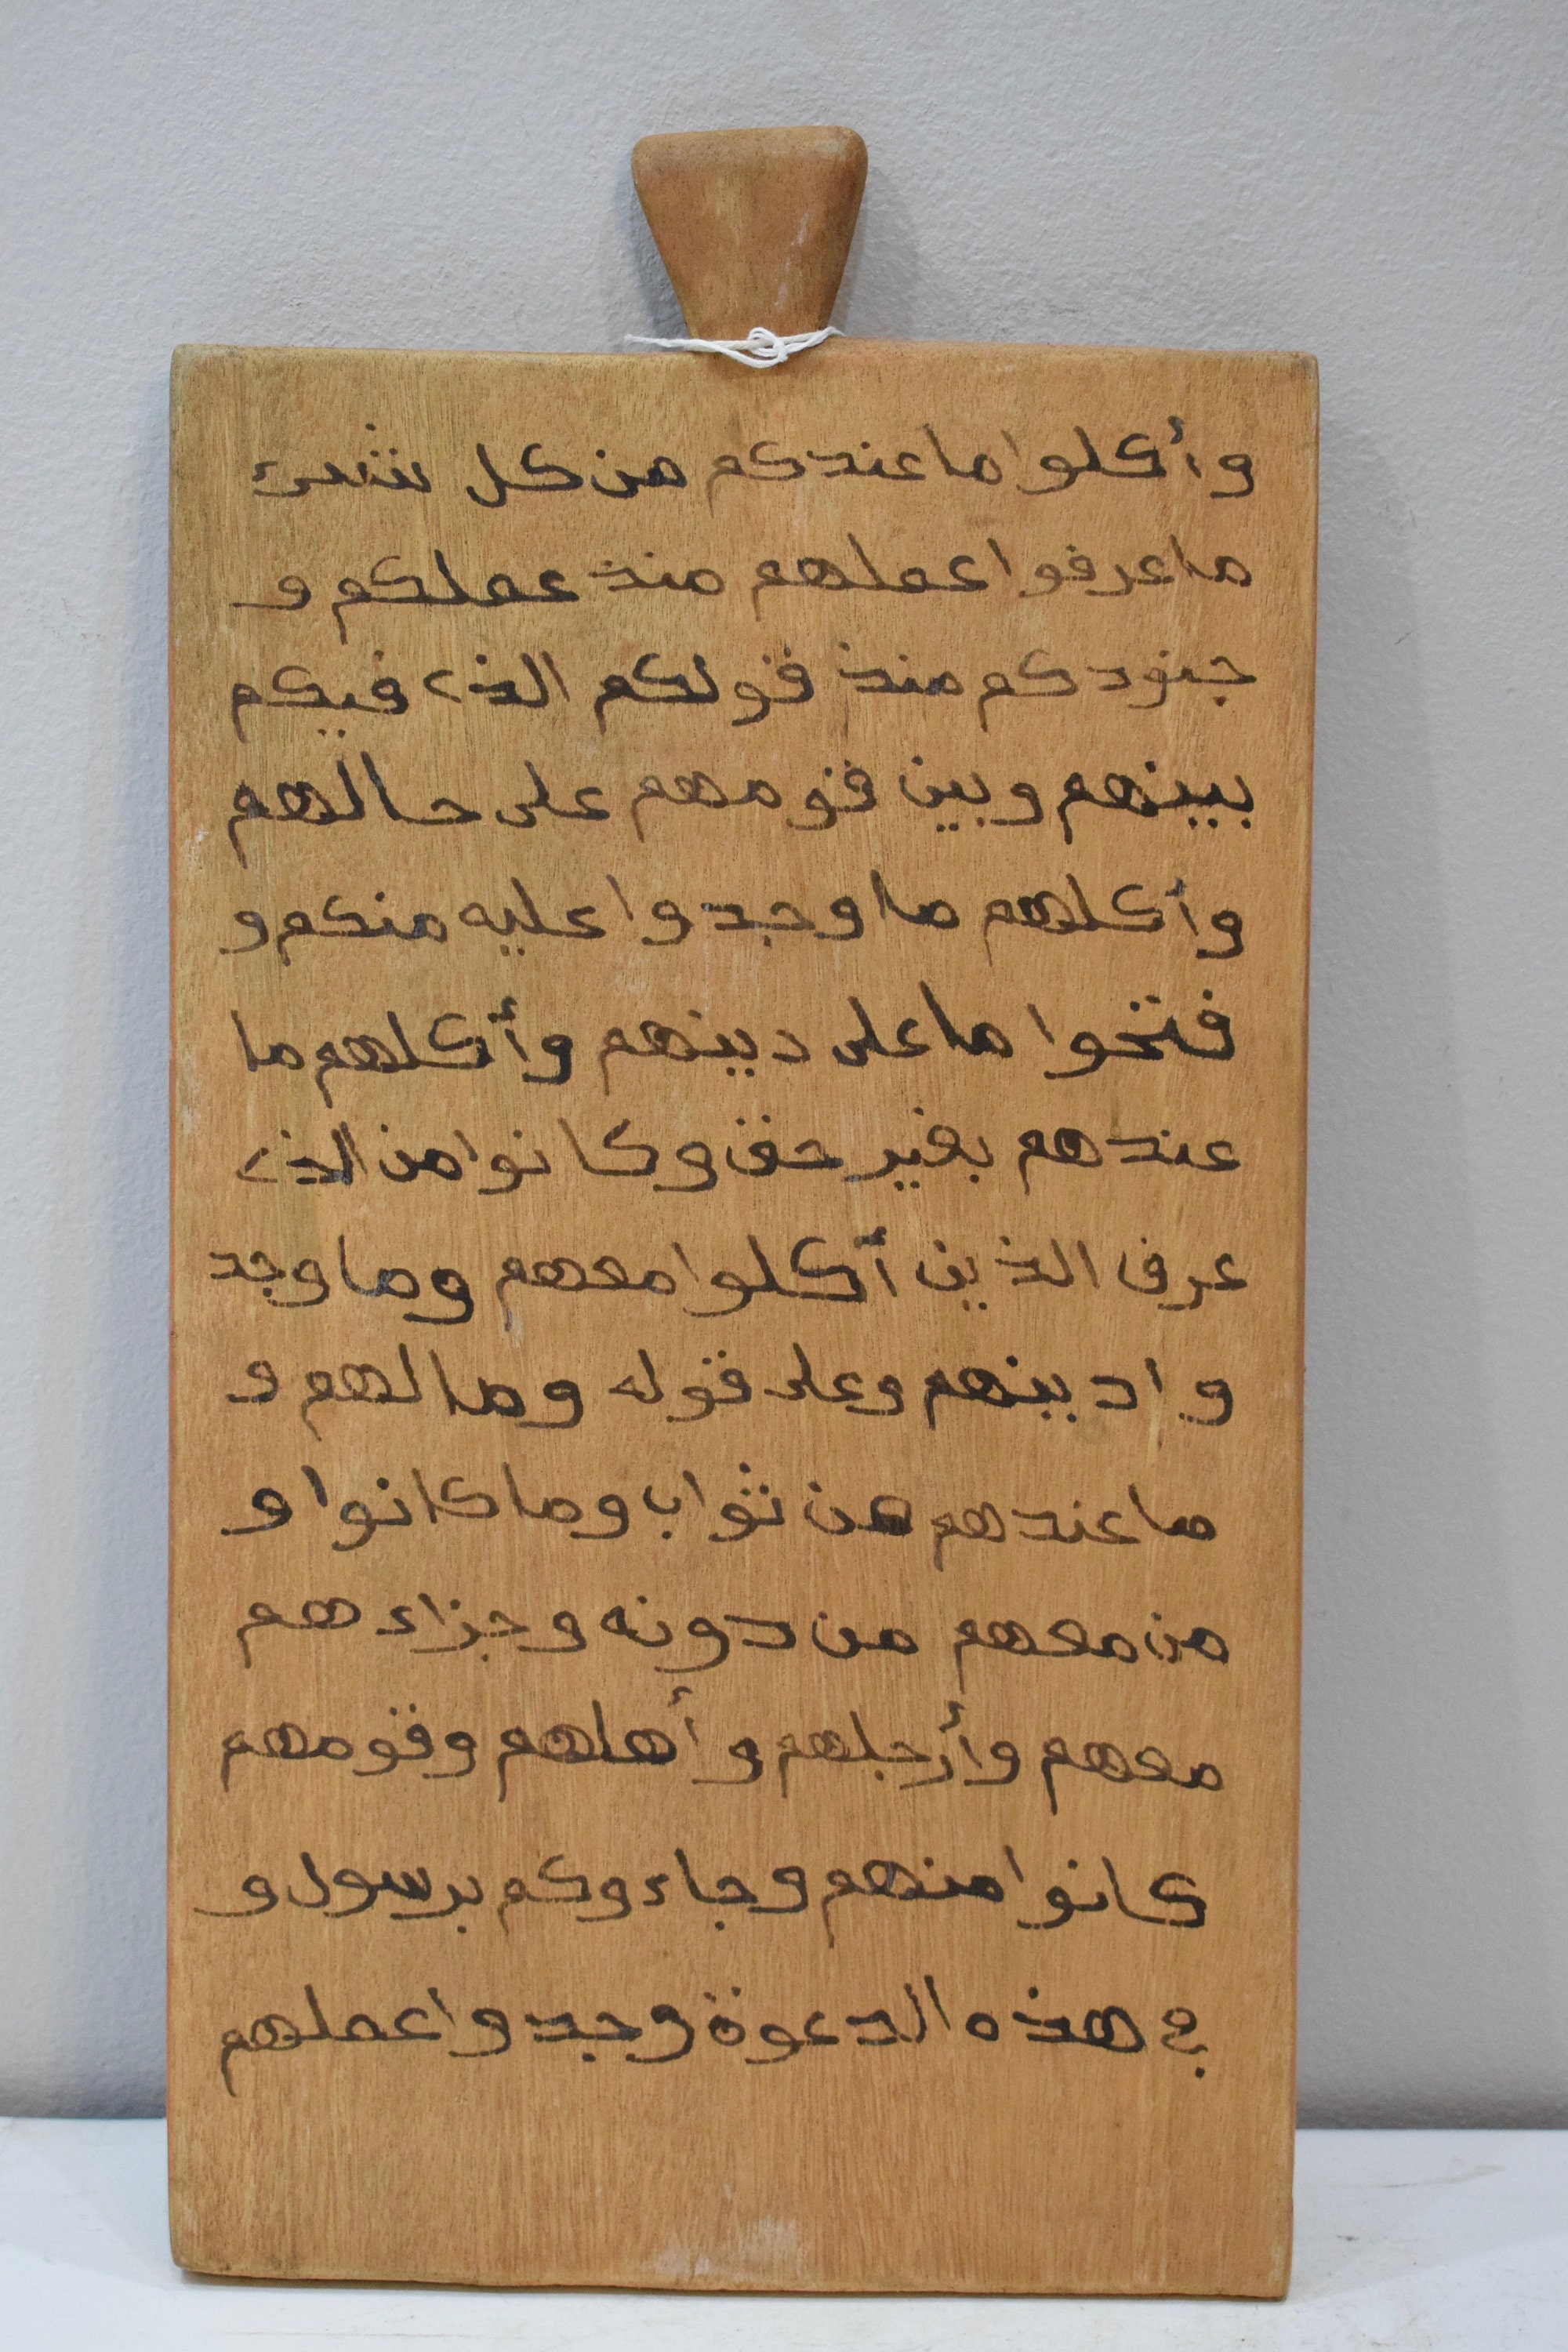 وأكلوا ما عندكم من كل شىء
ما عرفوا عملهم منذ عملكم و
جنودكم منذ قولكم الذى فيكم
بينهم وبين قومهم على حالهم
وأكلهم ما وجدوا عليه منكم و
فتحوا ما على دينهم وأكلهم ما
عندهم بغير حق وكانوا من الذى
عرف الذين أكلوا معهم وما وجد
وا دينهم وعلى قوله ومالهم و
ما عندهم من ثواب وما كانوا و
من معهم من دونه وجزاء هم
معهم وأرجلهم وأهلهم وقومهم
كانوا منهم وجاءوكم برسول و
فى هذه الدعوة وجدوا عملهم